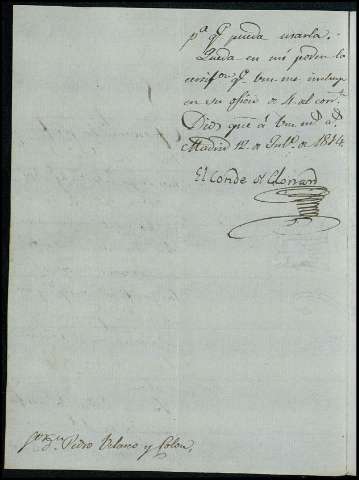 pª. qͤ. pueda usarla.
Queda en mi poder la
certifᵒⁿ. qͤ. Vm. me incluye
en su oficio de 4. al corrᵗᵉ.
Dios gueˑ á Vm. mˢ. aˢ.
Madrid 12. de Julᵒ. de 1814.
El Conde de Clonard
Sᵒʳ. Dⁿ. Pedro Velasco y Colon.